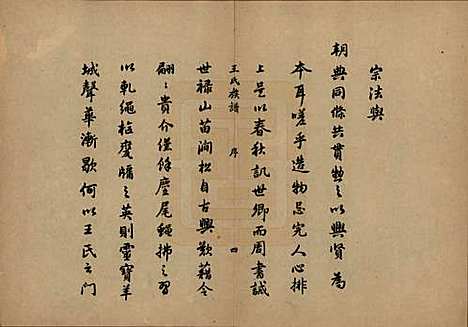 宗法與
朝典同條共貫要之以興賢為
本耳嗟乎造物忌完人心排
上是以春秋譏世卿而周書誡
王氏族譜 序 四
世祿山苗澗松自古興歎藉令
翩〻貴介僅餘麈尾蠅拂之習
以軌繩檢瓊牖之英則靈寶羊
城聲華漸歇何以王氏之門